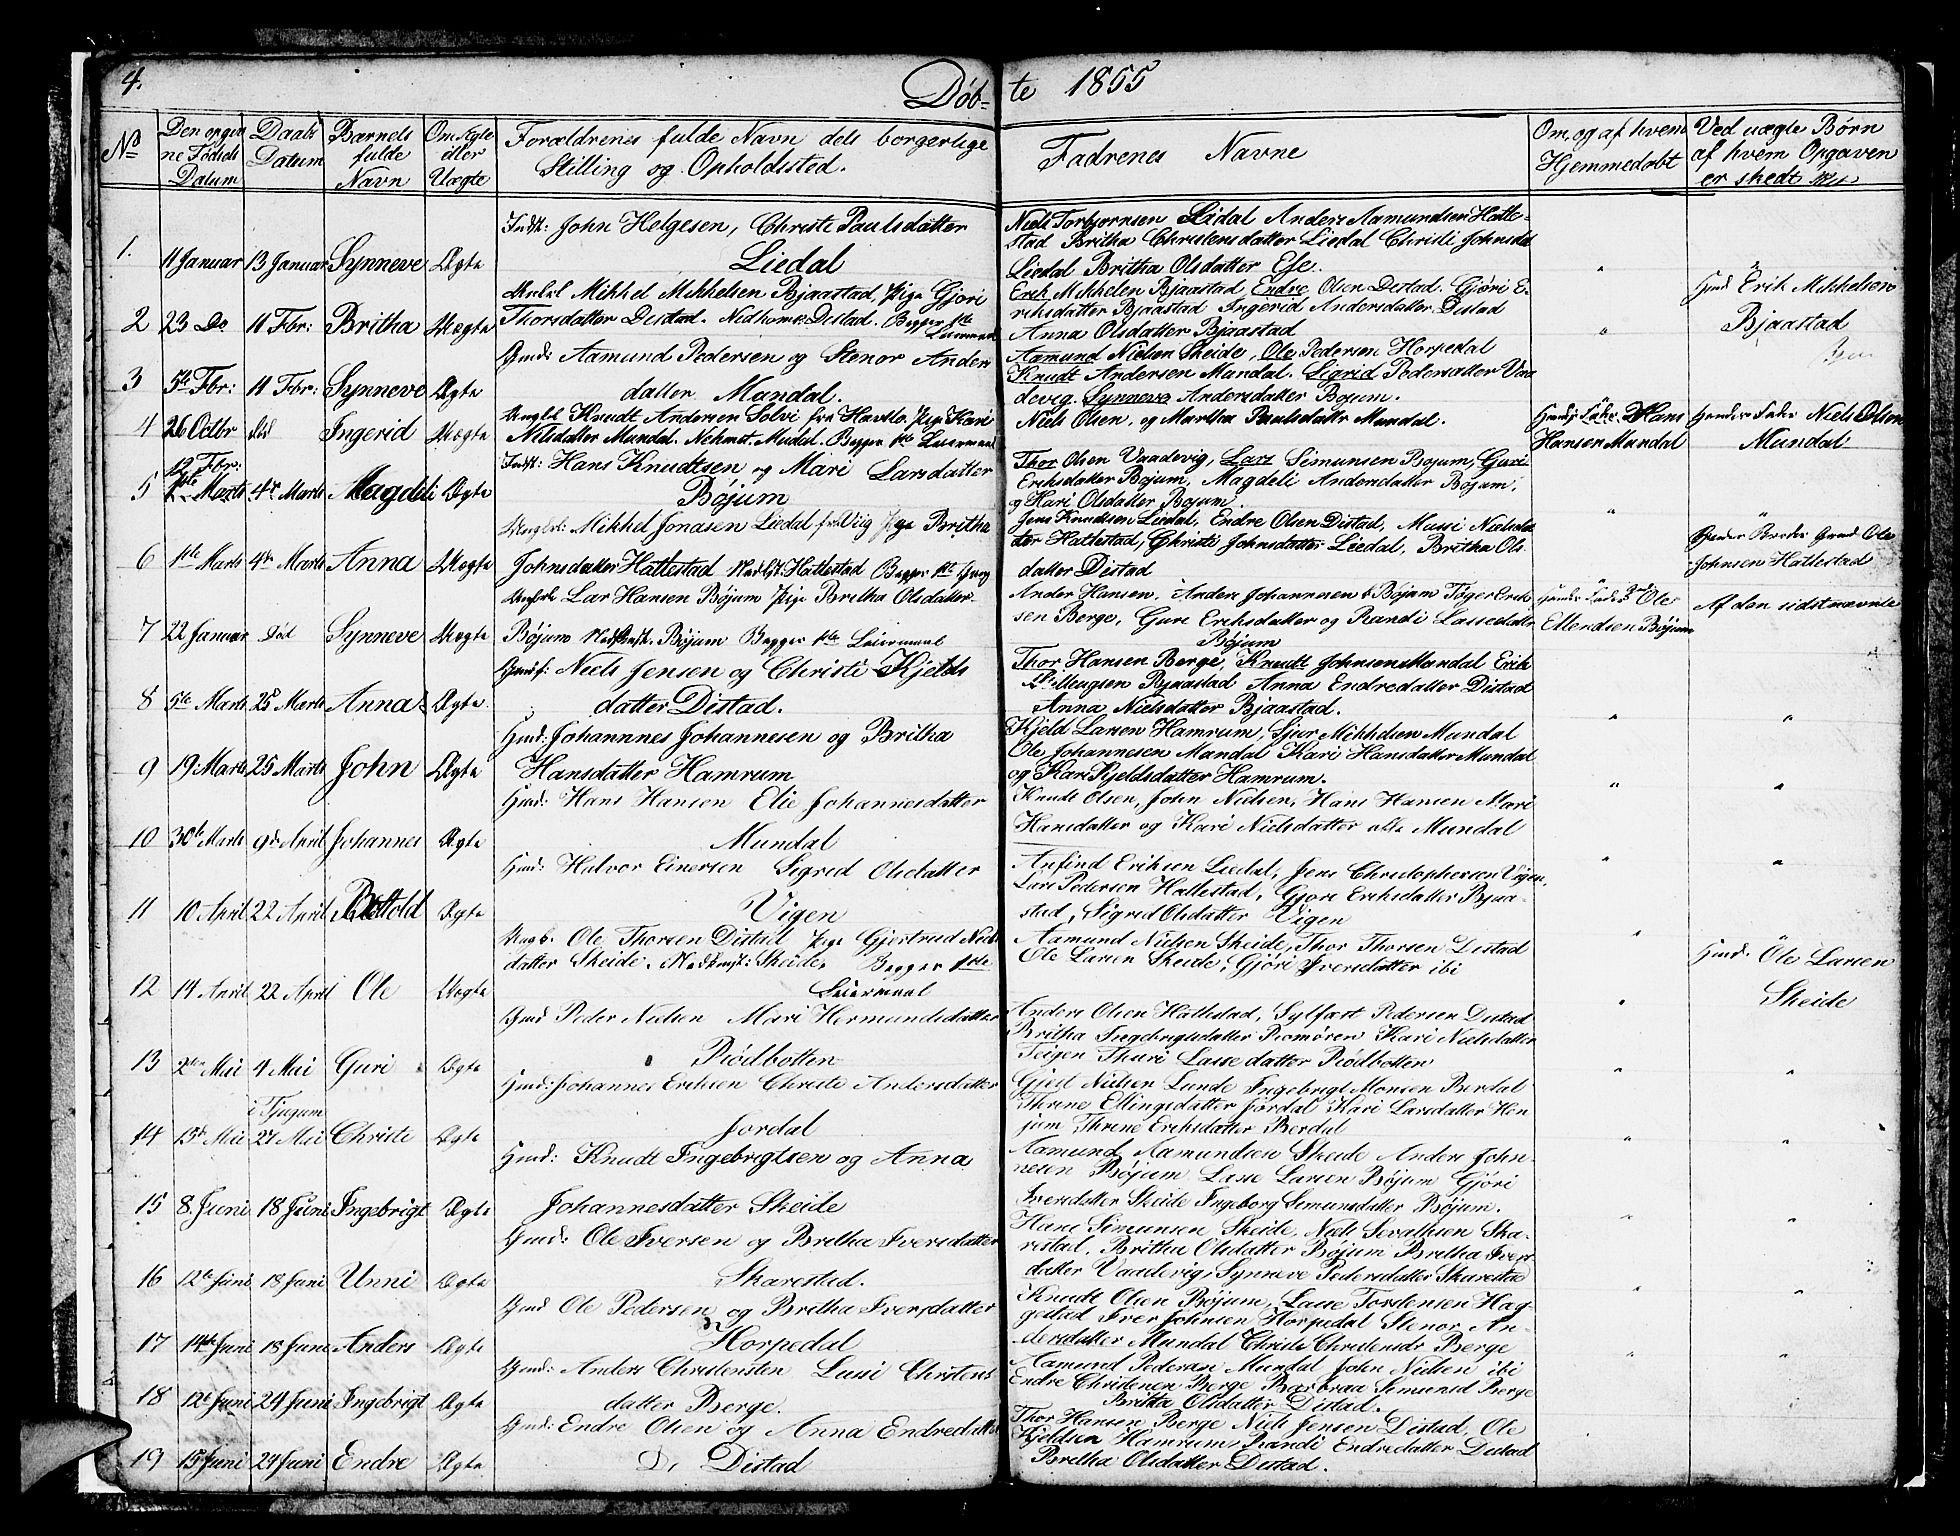 4.
Døb- te 1855
No
Den opgiv
ne Fødsels
Datum
Daabs
Datum
Barnets
fulde
Navn
Om Ægte
eller
Uægte
Forældrenes fulde Navn dels borgerlige
Stilling og Opholdssted.
Fadrenes Navne
Om, og af hvem
Hjemmedøbt
Ved uægte Børn
af hvem Opgaven
er skedt
1. 11 Januar 13 Januar Synneve Ægte
Indst: John Helgesen, Christi Paulsdatter
Liedal
Niels Torbjørnsen Liedal Anders Aamundsen Hatte-
stad Britha Christensdatter Liedal Christi Johnsdal
Liedal Britha Olsdatter Ese.
2 23 Do 11 Fbr: Britha Uægte
Ungkl Mikkel Mikkelsen Bjaastad, Pige Gjøri
Thorsdatter Distad. Nedkoms: Distad. Begges 1ste
Leiermaal
Erik Mikkelen Bjaastad Endre Olsen Distad. Gjøri E-
riksdatter Bjaastad Ingerid Andersdatter Distad
Anna Olsdatter Bjaastad
Gmd Erik Mikkelsen
Bjaastad
3 5te Fbr: 11 Fbr: Synneve Ægte
Gmd: Aamund Pedersen og Stenor Anders
datter Mundal.
Aamund Nielsen Skeide, Ole Pedersen Horpedal
Knudt Andersen Mundal. Sigrid Pedersdatter Vaa
devig. Synneve Andersdatter Bøjum.
4 26 Octbr did Ingerid Uægte
Ungkl Knudt Andersen Solvi fra Havslo. Pige Kari
Nilsdatter Mundal. Nedkmst. Mudal. Begges 1te Leiermaal
Niels Olsen, og Martha Paulsdatter Mundal.
Hans
Hansen Mundal
Niels Olsen
Mundal
5 12 Fbr: 4de Marts Magdeli Ægte
Indst: Hans Knudtsen og Mari Larsdatter
Bøjum
Thor Olsen Vaadevig, Lars Simunsen Bøjum, Guri
Eriksdatter Bøjum, Magdeli Andersdatter Bøjum,
og Kari Olsdatter Bøjum.
6 1ste Marts 4de Marts Anna Uægte
Ungkl: Mikkel Jonasen Liedal fr. Viig Pige Britha
Johnsdatter Hattestad Nedkst. Hattestad Begges 1st
Jens Knudtsen Liedal, Endre Olsen Distad, Massi Nielsdat
ter Hattestad, Christi Johnsdatter Liedal, Britha Ols
datter Distad
Ole
Johnsen Hattestad
7 22 Januar Død Synneve Uægte
Ungkl. Lar Hansen Bøjum Pige Britha Olsdatter
Bøjum Nedkmst. Bøjum Begges 1ste Leiermaal
Ander Hansen, Anders Johannesen Bøjum Tøger Erik
sen Berge, Guri Eriksdatter og Randi Lassedatter
Bøjum
Ole
Ellendsen Bøjum
Af den sidstnævnte
8 5te Marts 25 Marts Anna Ægte
Gmd: Niels Jensen og Christi Kjelds
datter Distad.
Thor Hansen Berge, Knudt Johnsen Mundal Erik
Bjaastad Anna Endredatter Distad
Anna Nielsdatter Bjaastad.
9 19 Marts 25 Marts John Ægte
Gmd: Johannnes Johannesen og Britha
Hansdatter Hamrum
Kjeld Larsen Hamrum, Sjur Mikkelsen Mundal
Ole Johannesen Mundal Kari Hansdatter Mundal
og Kari Kjeldsdatter Hamrum.
10 30te Marts 9de April Johannes Ægte
Gmd: Hans Hansen Elie Johannesdatter
Mundal
Knudt Olsen, John Nielsen, Hans Hansen Mari
Hansdatter og Kari Nielsdatter alle Mundal
11 10 April 22 April Bottold Ægte
Gmd: Halvor Einersen Sigred Olsdatter
Vigen
Anfind Eriksen Liedal, Jens Christophersen Vigen,
Lars Pedersen Hattestad, Gjøri Eriksdatter Bjaa-
stad, Sigred Olsdatter Vigen
12 14 April 22 April Ole Uægte
Ungk. Ole Thorsen Distad Pige Gjertrud Niels
datter Skeide. Nedkmst: Skeide, Begges 1ste
Leiermaal
Aamund Nielsen Skeide, Thor Thorsen Distad
Ole Larsen Skeide, Gjøri Iversdatter ibi
Gmd: Ole Larsen
Skeide
13 2den Mai 4 Mai Guri Ægte
Gmd Peder Nielsen Mari Hermundsdatter
Rødbotten
Anders Olsen Hattestad, Sylfæst Pedersen Distad
Britha Ingebrigtsdatter Romøren Kari Nielsdatter
Teigen Thuri Lassedatter Rødbotten
14 13de Mai i Tjugum 27 Mai Christi Ægte
Gmd: Johannes Eriksen Christi Andersdatter
Jordal
Gjest Nielsen Lunde Ingebrigt Monsen Berdal
Thrine Ellingsdatter Jordal Kari Larsdatter Hen
jum Thrine Eriksdatter Berdal
15 8 Juni 18 Juni Ingebrigt Ægte
Gmd: Knudt Ingebrigtsen og Anna
Johannesdatter Skeide
Aamund Aamundsen Skeide Anders John-
nesen Bøjum Lasse Larsen Bøjum Gjøri
Iversdatter Skeide Ingeborg Semunsdatter Bøjum.
16 12te Juni 18 Juni Unni Ægte
Gmd: Ole Iversen og Britha Iversdatter
Skarestad.
Hans Simunsen Skeide, Niels Serathsen Ska-
restad, Britha Olsdatter Bøjum Britha Ivers
datter Vaadevig, Synneve Pedersdatter Skarestad
17 14de Juni 18 Juni Anders Ægte
Gmd Ole Pedersen og Britha Iversdatter
Horpedal
Knudt Olsen Bøjum, Lasse Torstensen Hag-
gestad Iver Johnsen Horpedal Stenor An-
dersdatter Mundal Christi Christensdr Berge
18 12te Juni 24 Juni Ingebrigt Ægte
Gmd: Anders Christensten Lussi Christens
datter Berge.
Aamund Pedersen Mundal John Nielsen ibi
Endre Christensen Berge Barbraa Semunsd Berge
Britha Olsdatter Distad.
19 15 Juni 24 Juni Endre Ægte
Gmd: Endre Olsen og Anna Endredatter
Distad
Thor Hansen Berge Niels Jensen Distad, Ole
Kjeldsen Hamrum, Randi Endredatter Distad
Britha Olsdatter Distad.